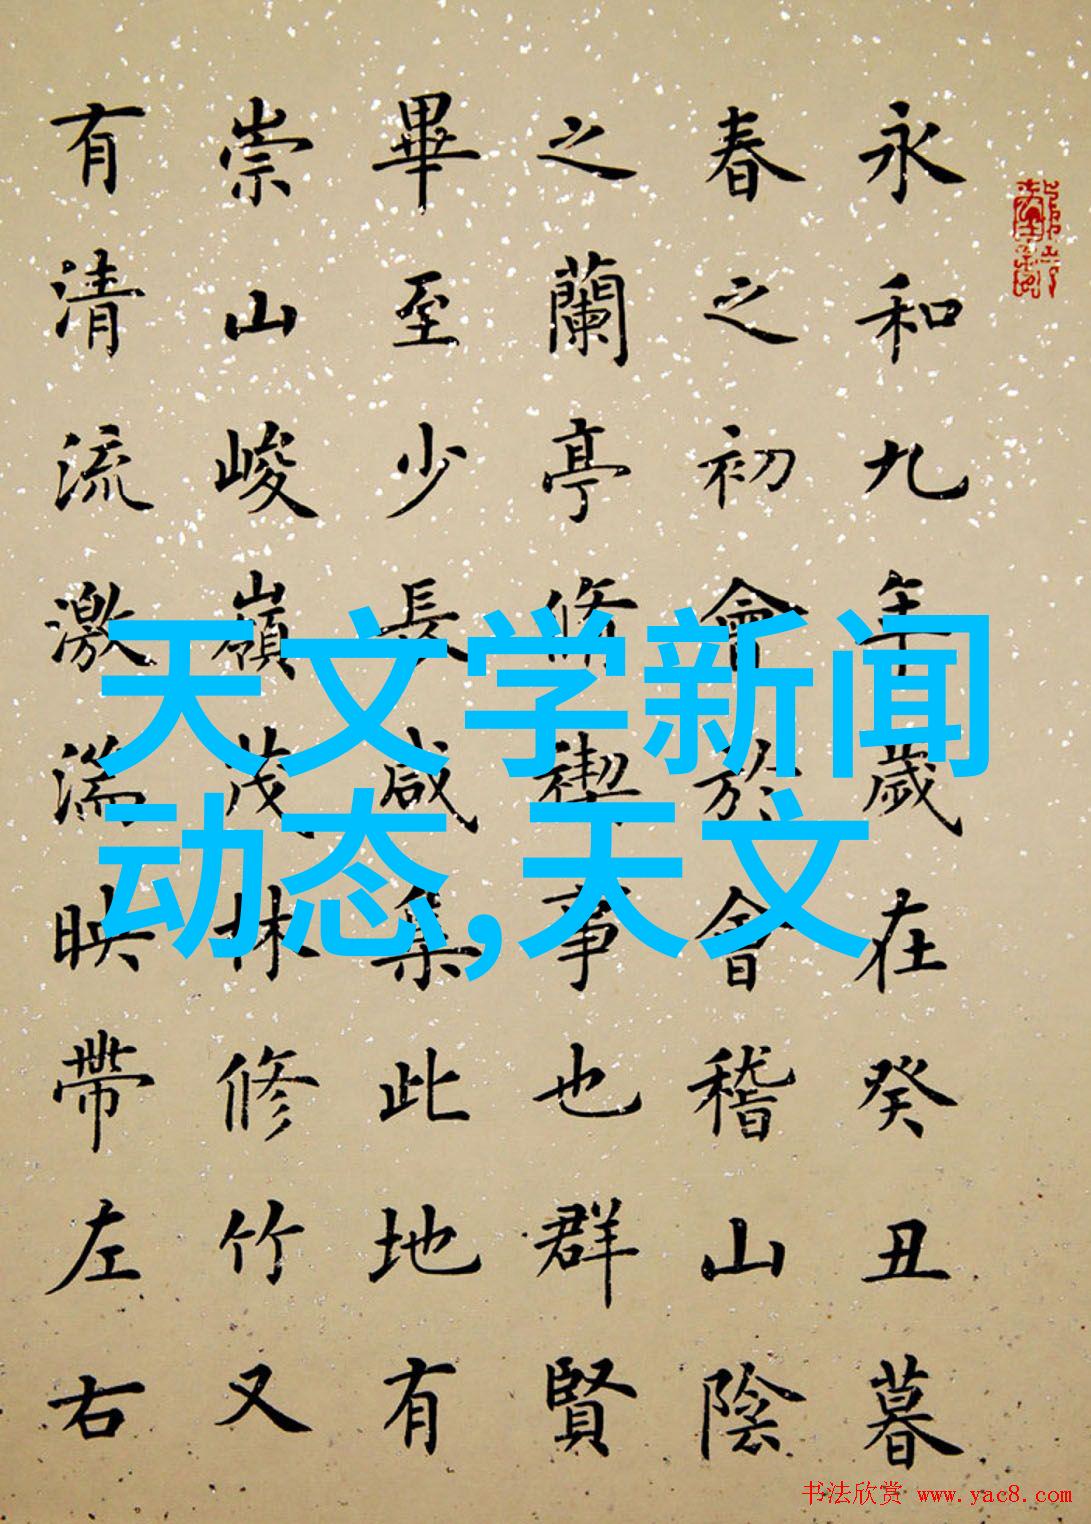 永和九年歲在癸丑暮
春之初會於會稽山陰
之蘭亭脩禊事也群賢
畢至少長咸集此地有
崇山峻嶺茂林修竹又
有清流激湍映帶左右
天文学新闻
动态,天文
书法欣赏 www.yac8.com